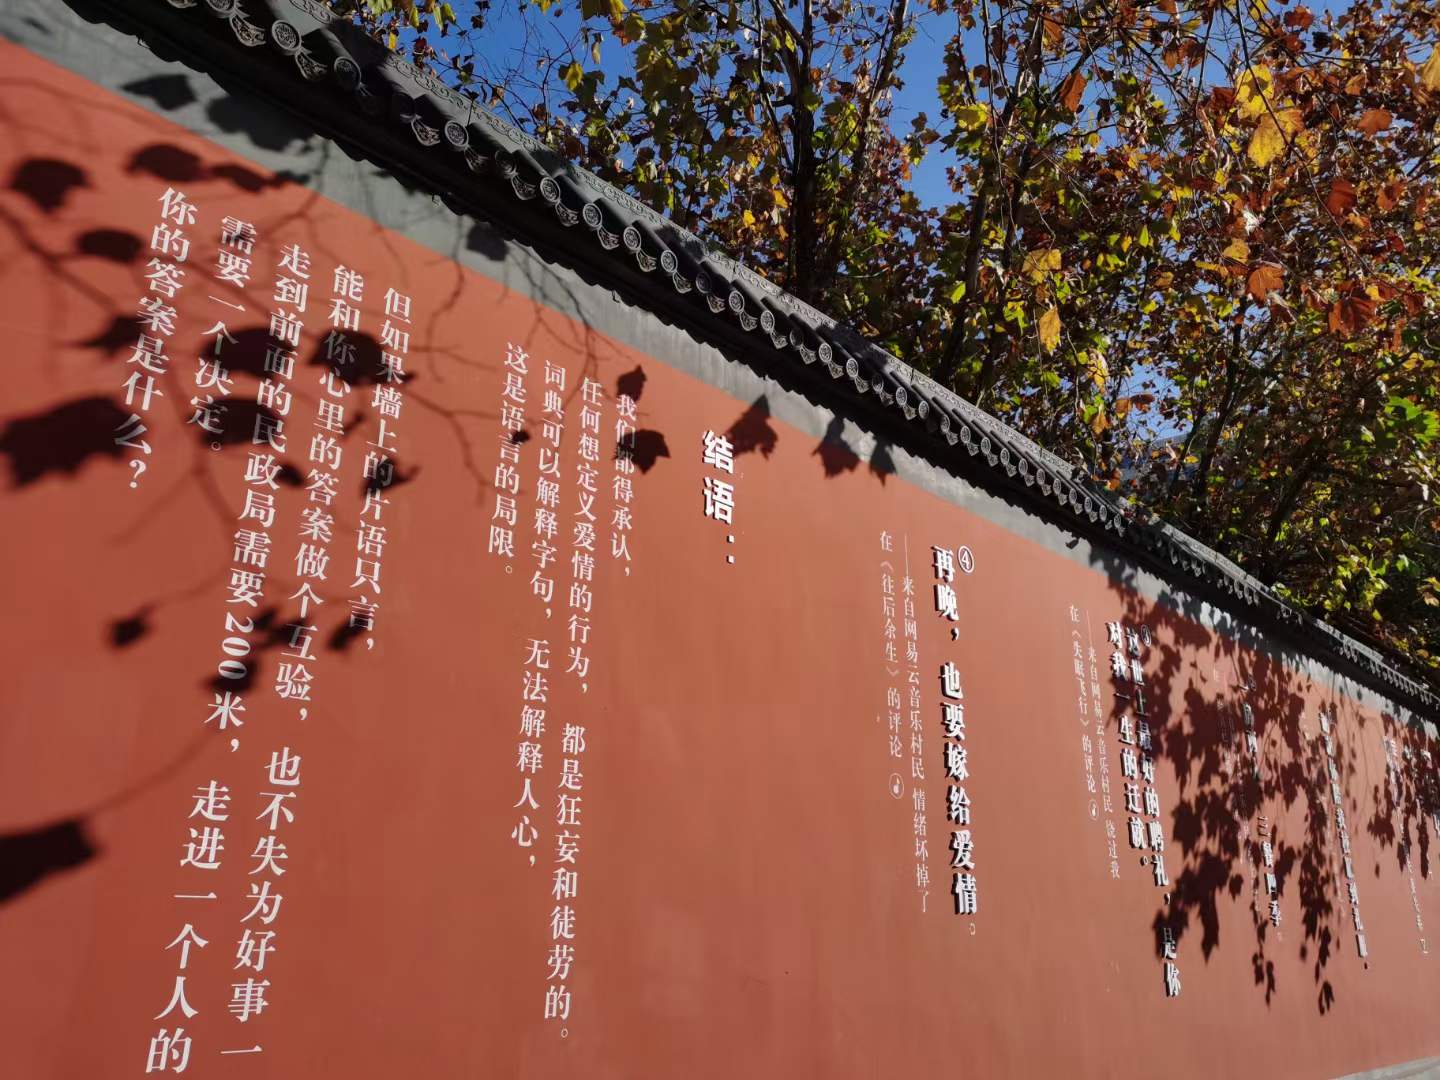 三餐四季。
③
这世上最好的聘礼，是你
对我一生的迁就。
——来自网易云音乐村民 绕过我
在《失眠飞行》的评论
④
再晚，也要嫁给爱情。
——来自网易云音乐村民 情绪坏掉了
在《往后余生》的评论
结语：
我们都得承认，
任何想定义爱情的行为， 都是狂妄和徒劳的。
词典可以解释字句，无法解释人心，
这是语言的局限。
但如果墙上的片语只言，
能和你心里的答案做个互验，也不失为好事一
走到前面的民政局需要200米，走进一个人的
需要一个决定。
你的答案是什么？